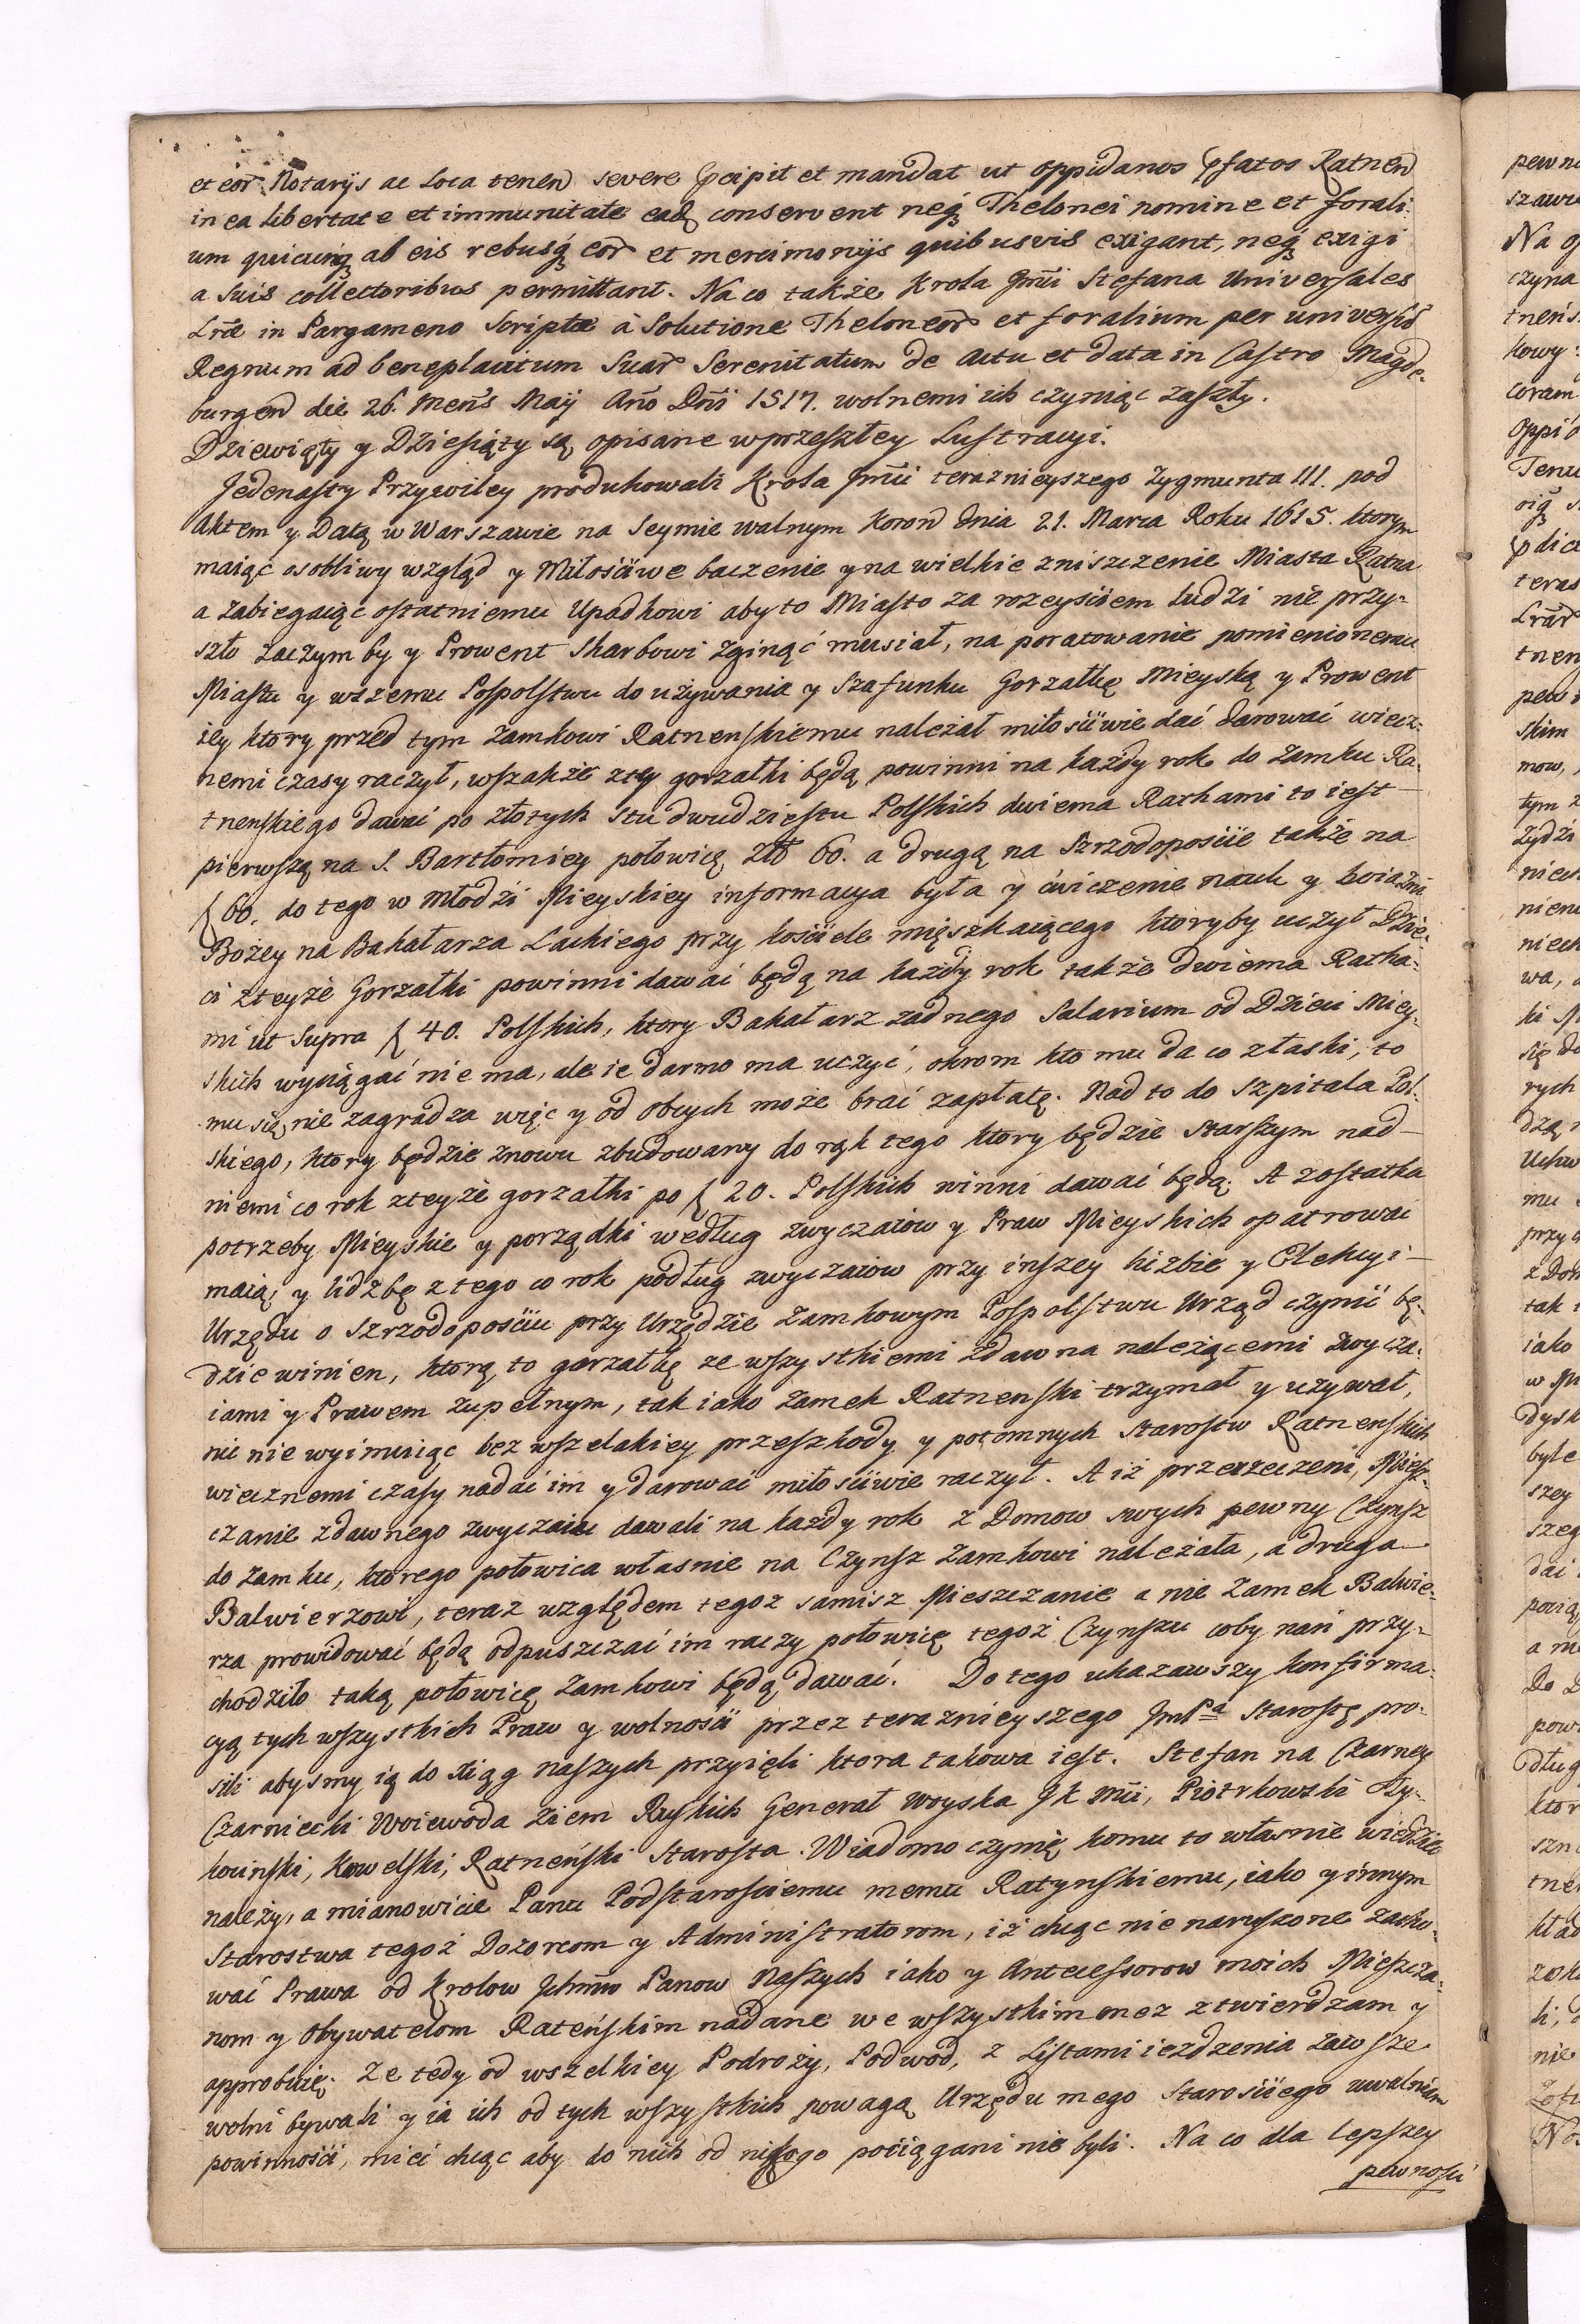 et eor̃ Notarÿs ac Loca tenen̄ severe p̱cipit et mandat ut oppidanos p̱fatos Ratnen̄
in ea Libertate et immunitate eadȩ conservent neq̃ Thelonei nomine et forali:
um quicunq̃ ab eis rebusq̃ eor̃ et mercimonÿs quibusvis exigant, neq̃ exigi
a suis collectoribus permittant. Na co także Krola Jmci Stefana Universales
Lræ in Pargameno Scriptæ á Solutione Theloneor̃ et foralium per univers̄
Regnum ad beneplacitum Suar̃ Serenitatum de Actu et data in Castro Magde-
burgen̄ die 26. Mens̃ Maÿ Año Dñi 1517. wolnemi ich czyniąc zaszły.
Dziewiąty y Dziesiąty są opisane w przeszłey Lustracyi.
Jedenasty Przywiley produkowali Krola Jmci teraznieyszego Zygmunta III. pod
Aktem y Datą w Warszawie na Seymie walnym Koron̄ dnia 21. Marca Roku 1615. ktorym
maiąc osobliwy wzgląd y Miłościwe baczenie y na wielkie zniszczenie Miasta Ratna
a zabiegaiąc ostatniemu Upadkowi aby to Miasto za rozeysciem ludzi nie przy-
szło zaczym by y Prowent Skarbowi zginąć musiał, na poratowanie pomienionemu
Miastu y wszemu Pospolstwu do używania y Szafunku Gorzałkę Mieyską y Prowent
iey ktory przed tym Zamkowi Ratnenskiemu należał miłosciwie dać darować wiecz-
nemi czasy raczył, wszakże z tey gorzałki będą powinni na każdy rok do Zamku Ra-
tnenskiego dawać po złotych Stu dwudziestu Polskich dwiema Rathami to iest
pierwszą na S. Bartłomiey połowicę Złł 60. a drugą na Szrzodoposcie także na
ƒ 60. do tego w Młodźi Mieyskiey informacya była y ćwiczenie nauk y boiaźni
Bożey na Bakałarza Lackiego przy kościele mięszkaiącego ktoryby uczył Dzie-
ci z teyże Gorzałki powinni dawać będą na każdy rok także dwiema Ratha-
mi ut Supra ƒ 40. Polskich, ktory Bakałarz żadnego Salarium od Dzieci Miey-
skich wyciągać nie ma, ale ie darmo ma uczyć, okrom kto mu da co z łaski, to
mu się nie zagradza więc y od Obcych może brać zapłatę. Nad to do Szpitala Pol-
skiego, ktory będzie znowu zbudowany do rąk tego ktory będzie Starszym nad
niemi co rok z teyże gorzałki po ƒ 20. Polskich winni dawać będą. A z ostatka
potrzeby Mieyskie y porządki według zwyczaiow y Praw Mieyskich opatrować
maią, y lidzbę z tego co rok podług zwyczaiow przy inszey liczbie y Elekcyi
Urzędu o Szrzodoposciu przy Urzędzie Zamkowym Pospolstwu Urząd czynić bę-
dzie winien, ktorą to gorzałkę ze wszystkiemi zdawna należącemi zwycza-
iami y Prawem zupełnym, tak iako Zamek Ratnenski trzymał y używał,
nic nie wyimuiąc bez wszelakiey przeszkody y potomnych Starostw Ratnenskich
wiecznemi czasy nadać im y darować miłosciwie raczył. A iż przerzeczeni, Miesz-
czanie zdawnego zwyczaiu dawali na każdy rok z Domow swych pewny Czynsz
do Zamku, ktorego połowica własnie na Czynsz Zamkowi należała, a druga
Balwierzowi, teraz względem tegoż samisz Mieszczanie a nie Zamek Balwie-
rza prowidować będą odpuszczać im raczy połowicę tegoż Czynszu coby nań przy-
chodziło taką połowicę Zamkowi będą dawać. Do tego ukazawszy konfirma-
cyą tych wszystkich Praw y wolności przez teraznieyszego JmPa Starostę pro-
sili abysmy ią do xiąg naszych przyięli ktora takowa iest. Stefan na Czarncy
Czarniecki Woiewoda Ziem Ruskich Generał Woyska Jk Mci, Piotrkowski Ty-
kocinski, Kowelski, Ratneński Starosta. Wiadomo czynię komu to własnie wiedzieć
należy, a mianowicie Panu Podstarosciemu memu Ratynskiemu, iako y innym
Starostwa tegoż Dozorcom y Administratorom, iż chcąc nienaruszone zacho-
wać Prawa od Krolow Jchmm Panow Naszych iako y Antecessorow moich Mieszcza-
nom y Obywatelom Rateńskim nadane we wszystkim onez ztwierdzam y
approbuię. Ze tedy od wszelkiey Podroży, Podwod, z Listami iezdzenia zawsze
wolni bywali y ia ich od tych wszystkich powagą Urzędu mego Starosciego uwalniam
powinności, mieć chcąc aby do nich od nikogo pociągani nie byli. Na co dla lepszey
pewnosci